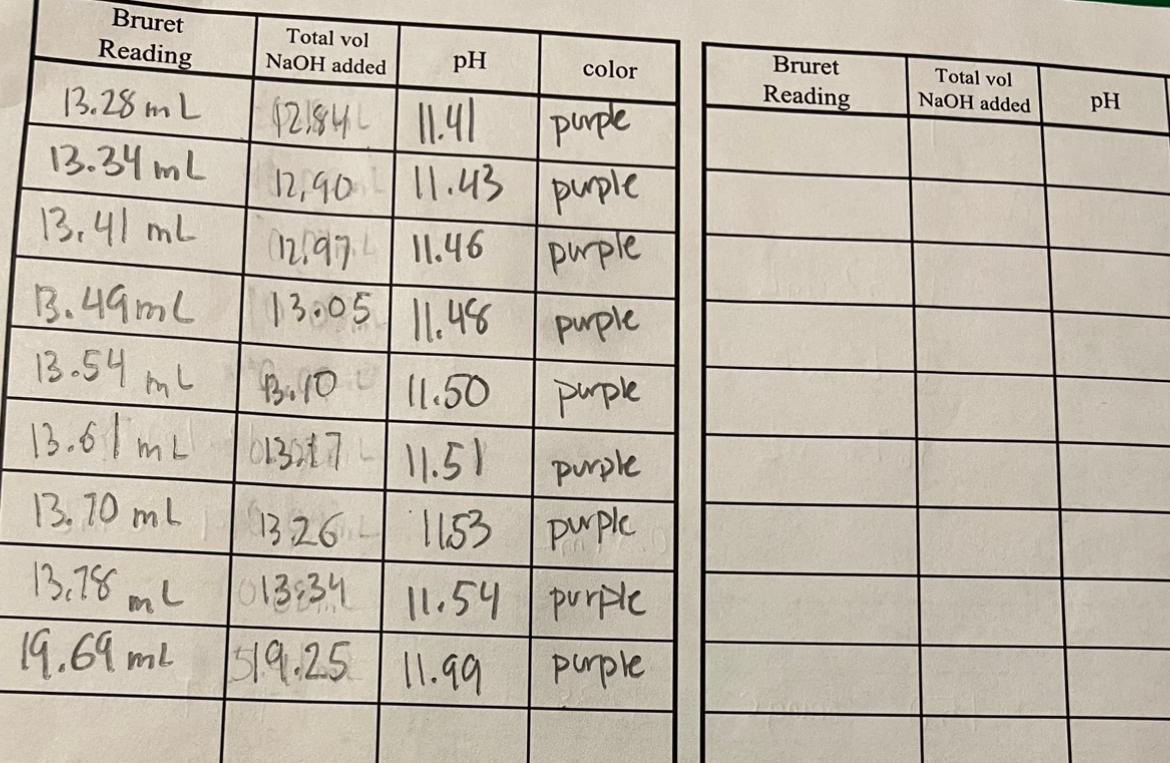 Bruret Reading Total vol NaOH added pH color
13.28 mL 12.84 11.41 purple
13.34 mL 12.90 11.43 purple
13.41 mL 12.97 11.46 purple
13.49 mL 13.05 11.48 purple
13.54 mL 13.10 11.50 purple
13.61 mL 13.17 11.51 purple
13.70 mL 13.26 11.53 purple
13.78 mL 13.34 11.54 purple
19.69 mL 19.25 11.99 purple
Bruret Reading Total vol NaOH added pH